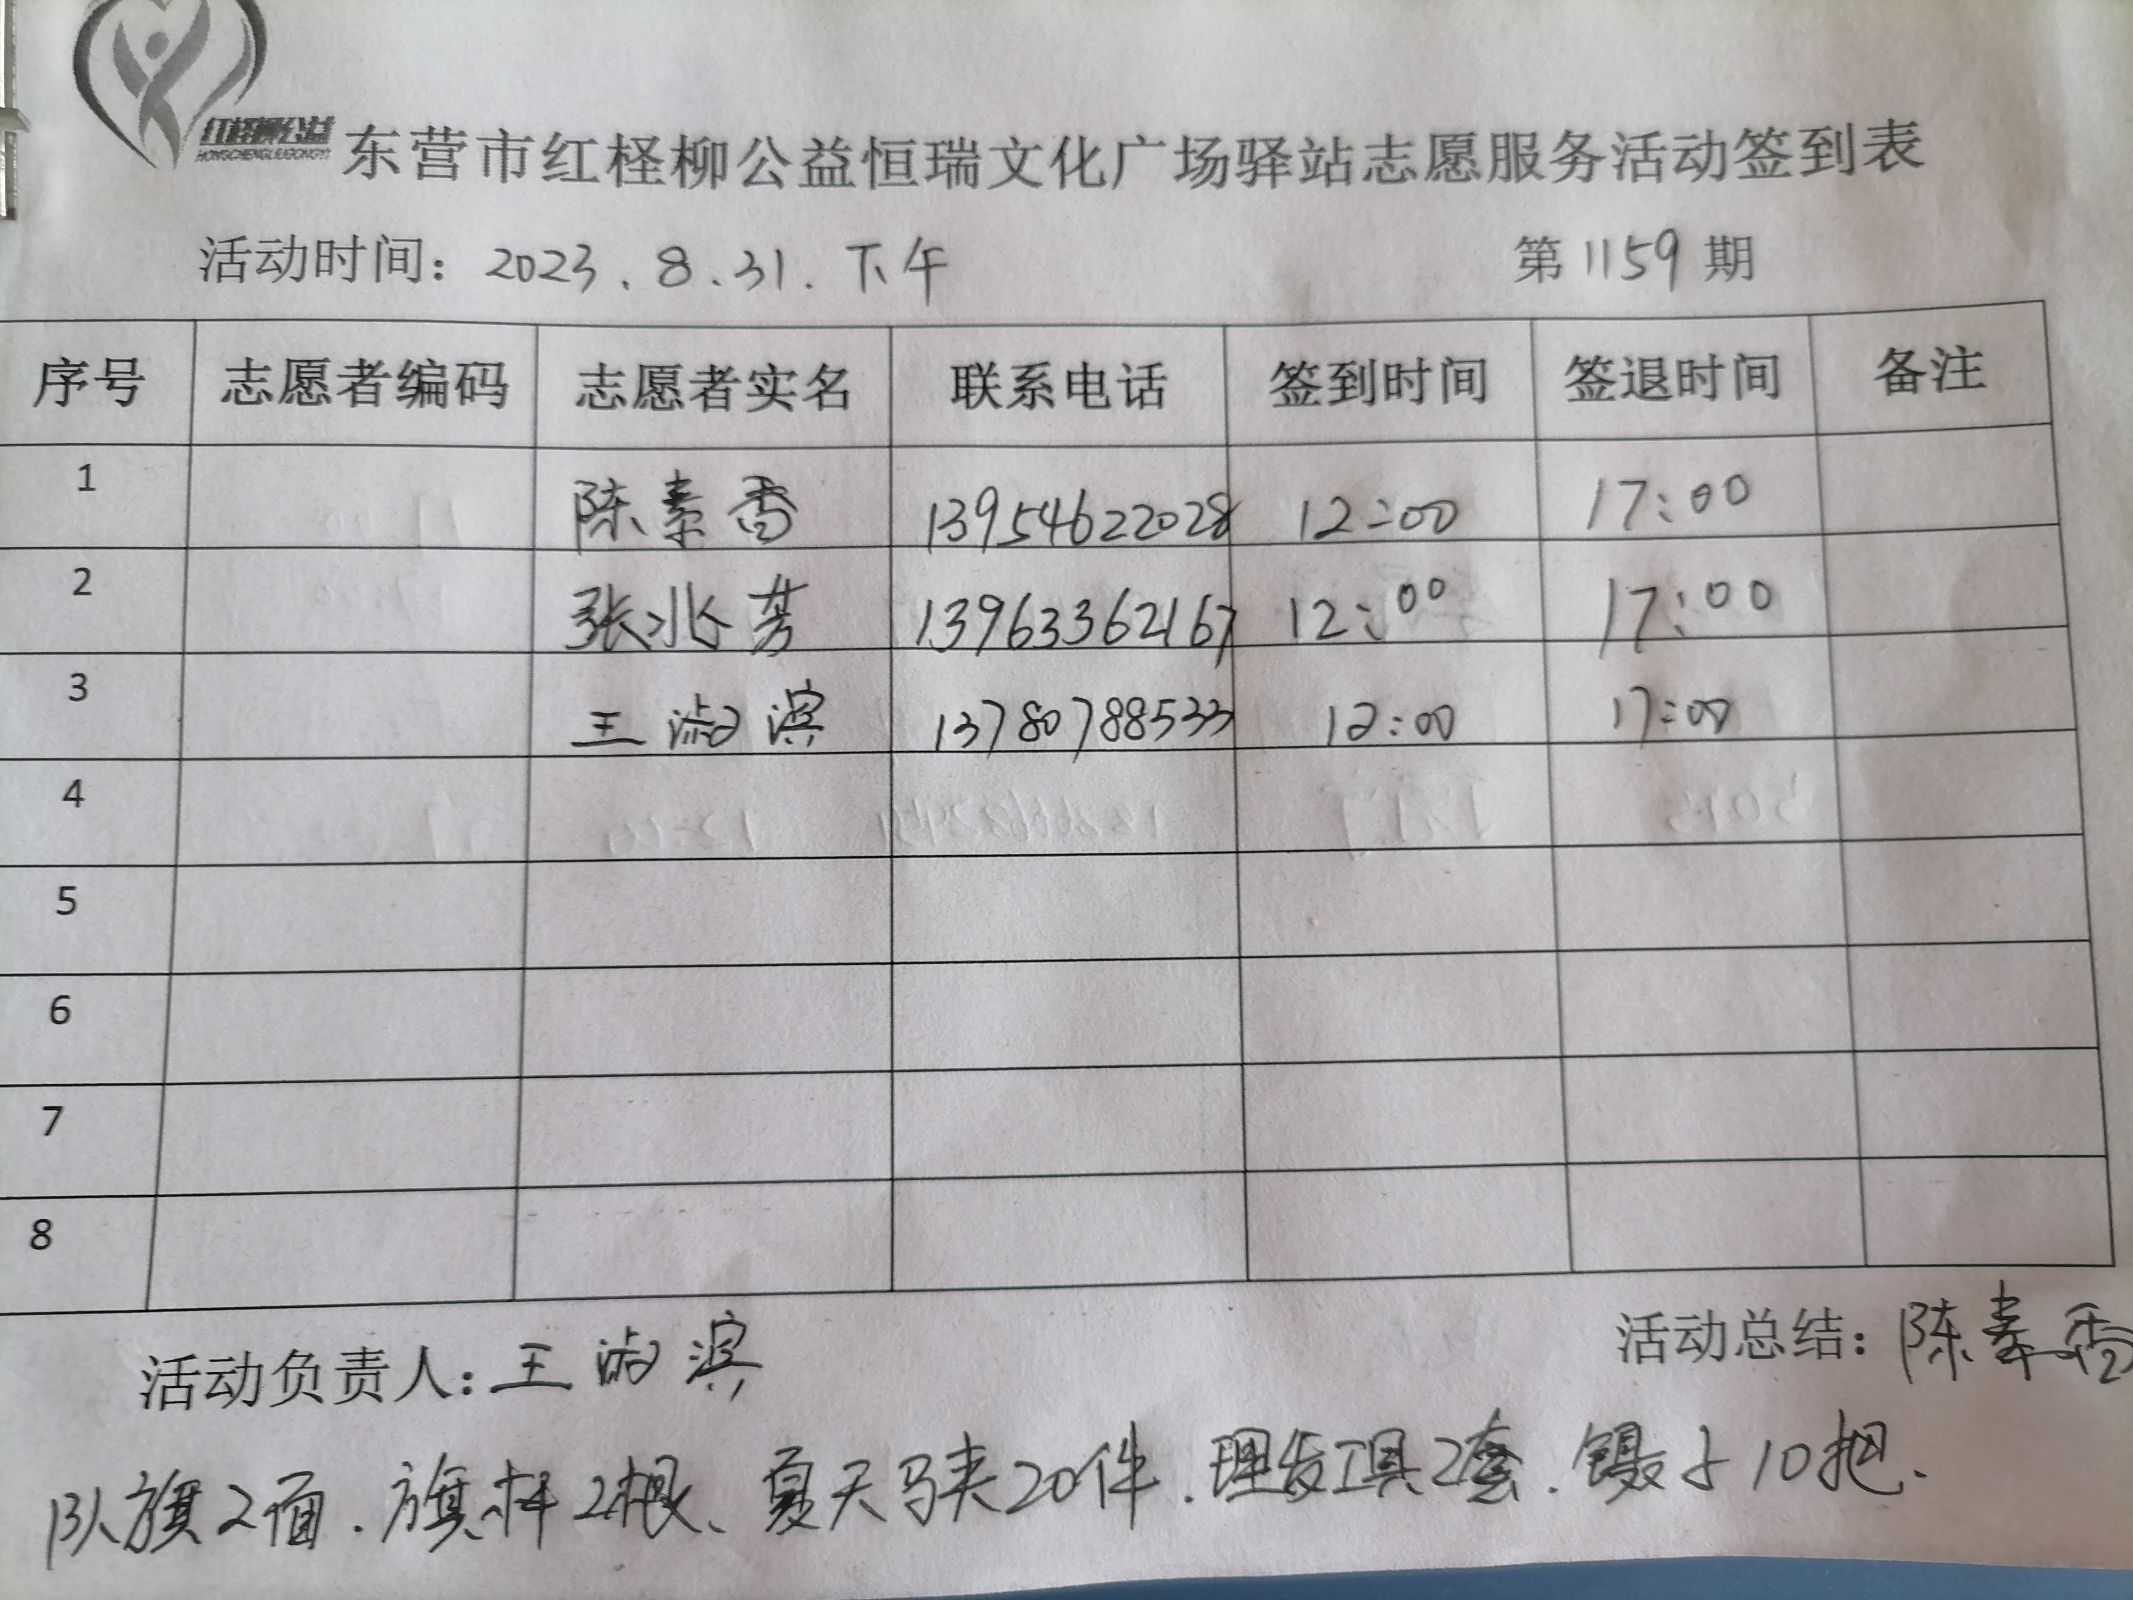 红柽柳公益
HONGCHENGLIUGONGYI
东营市红柽柳公益恒瑞文化广场驿站志愿服务活动签到表
活动时间：2023.8.31.下午 第1159期
序号 志愿者编码 志愿者实名 联系电话 签到时间 签退时间 备注
1 陈素香 13954622028 12:00 17:00
2 张兆芳 13963362167 12:00 17:00
3 王淑滨 13780788533 12:00 17:00
4
5
6
7
8
活动负责人：王淑滨 活动总结：陈素香
队旗2面.旗杆2根、夏天马夹20件.理发工具2套.镊子10把、